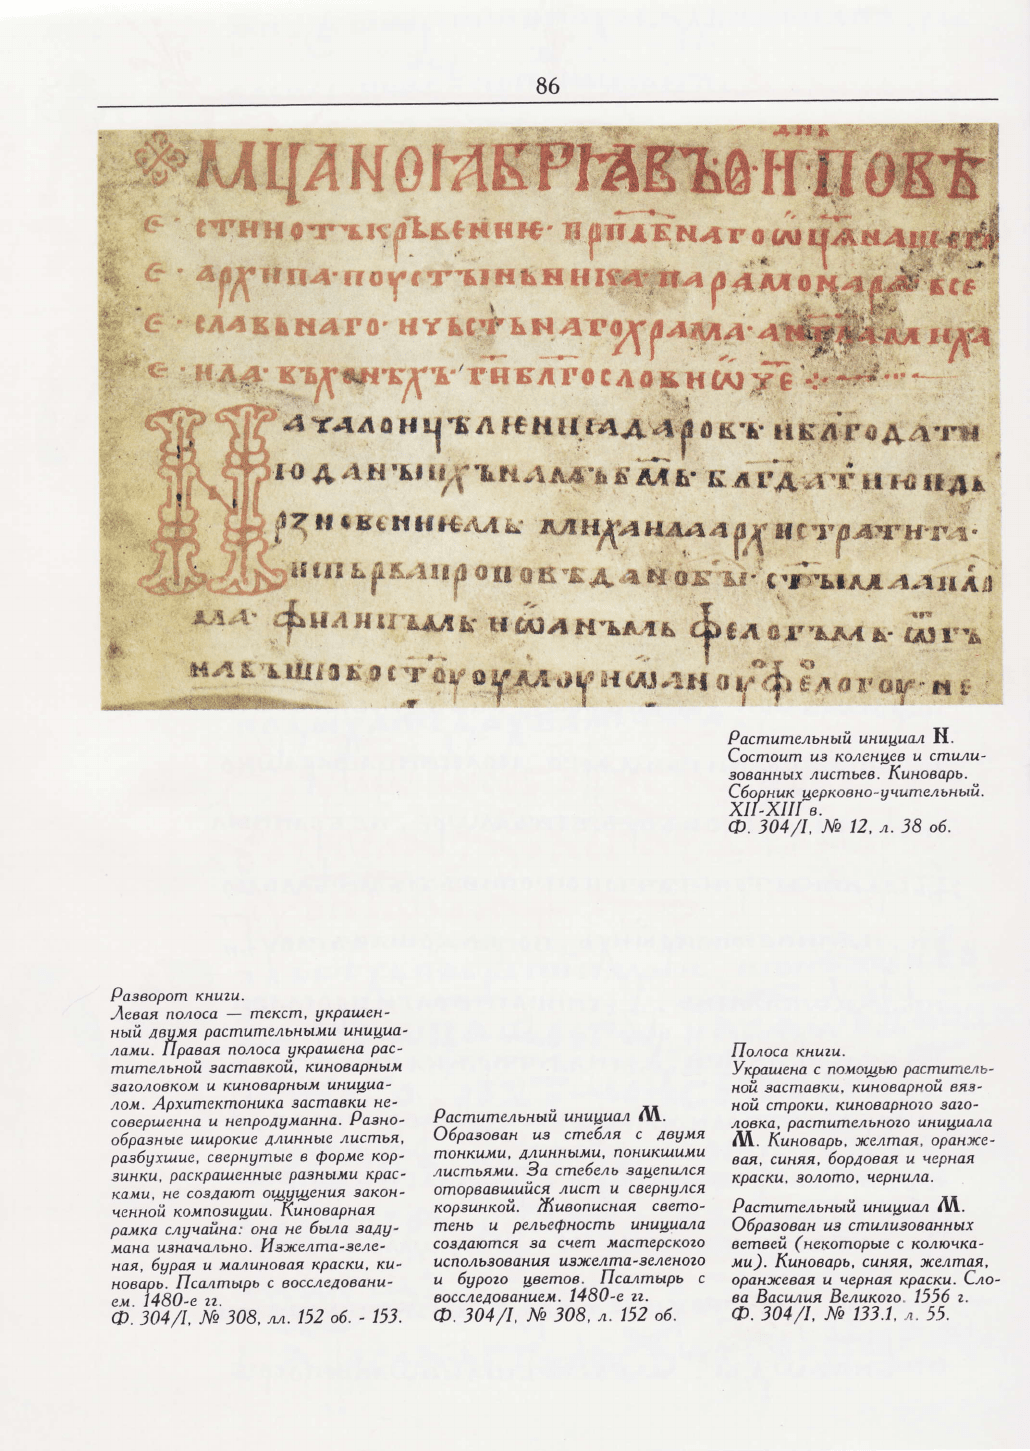 86
дн҃ь
МЦАНОꙖБРꙖВЪ·Ѳ·Н·ПОВѢ
Є· СТИИОТЪКРЪВЕНИЄ· ПРПДБНАГОѾЦАНАШЕГО
Є· АРХИПА·ПОУСТЪІНЬНИКА·ПАРАМОНАРА·ВСЕ
Є· СЛАВЬНАГО·ИЧЬСТЬНАГОХРАМА·АНГЛАМИХА
Є· ИЛА·ВЪХОНѢХЪ·ГИБЛГОСЛОВИѾЧЕ
N АЧАЛОИЦѢЛѤНИꙖДАРОВЪ·ИБЛГОДАТИ
ЮДАНЪІИХЪНАМЪБМЬ·БЛГДАТИЮИДЬ
РЗНОВЕНИѤМЬ МИХАИЛААРХИСТРАТИГА·
ИСПЬРВАПРОПОВѢДАНОБЪІ·СТЪІМААПЛО
МА·ФИЛИПЪМЬ·ИѾАНЪМЬ ФЕЛОГЪМЬ·ѾГЪ
НАВЪШЮБОСТОУОУМОУИѾАНОУФЕЛОГОУ·НЕ
Растительный инициал N.
Состоит из коленцев и стили-
зованных листьев. Киноварь.
Сборник церковно-учительный.
XII-XIII в.
Ф. 304/I, № 12, л. 38 об.
Разворот книги.
Левая полоса — текст, украшен-
ный двумя растительными инициа-
лами. Правая полоса украшена рас-
тительной заставкой, киноварным
заголовком и киноварным инициа-
лом. Архитектоника заставки не-
совершенна и непродуманна. Разно-
образные широкие длинные листья,
разбухшие, свернутые в форме кор-
зинки, раскрашенные разными крас-
ками, не создают ощущения закон-
ченной композиции. Киноварная
рамка случайна: она не была заду-
мана изначально. Изжелта-зеле-
ная, бурая и малиновая краски, ки-
новарь. Псалтырь с восследовани-
ем. 1480-е гг.
Ф. 304/I, № 308, лл. 152 об. - 153.
Растительный инициал М.
Образован из стебля с двумя
тонкими, длинными, поникшими
листьями. За стебель зацепился
оторвавшийся лист и свернулся
корзинкой. Живописная свето-
тень и рельефность инициала
создаются за счет мастерского
использования изжелта-зеленого
и бурого цветов. Псалтырь с
восследованием. 1480-е гг.
Ф. 304/I, № 308, л. 152 об.
Полоса книги.
Украшена с помощью раститель-
ной заставки, киноварной вяз-
ной строки, киноварного заго-
ловка, растительного инициала
М. Киноварь, желтая, оранже-
вая, синяя, бордовая и черная
краски, золото, чернила.
Растительный инициал М.
Образован из стилизованных
ветвей (некоторые с колючка-
ми). Киноварь, синяя, желтая,
оранжевая и черная краски. Сло-
ва Василия Великого. 1556 г.
Ф. 304/I, № 133.1, л. 55.